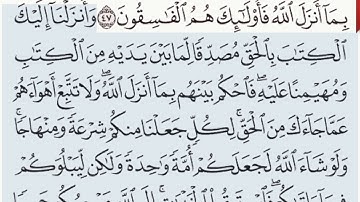 بِمَآ أَنزَلَ ٱللَّهُ فَأُو۟لَٰٓئِكَ هُمُ ٱلْفَٰسِقُونَ ٤٧ وَأَنزَلْنَآ إِلَيْكَ
ٱلْكِتَٰبَ بِٱلْحَقِّ مُصَدِّقًا لِّمَا بَيْنَ يَدَيْهِ مِنَ ٱلْكِتَٰبِ
وَمُهَيْمِنًا عَلَيْهِ ۖ فَٱحْكُم بَيْنَهُم بِمَآ أَنزَلَ ٱللَّهُ ۖ وَلَا تَتَّبِعْ أَهْوَآءَهُمْ
عَمَّا جَآءَكَ مِنَ ٱلْحَقِّ ۚ لِكُلٍّ جَعَلْنَا مِنكُمْ شِرْعَةً وَمِنْهَاجًا ۚ
وَلَوْ شَآءَ ٱللَّهُ لَجَعَلَكُمْ أُمَّةً وَٰحِدَةً وَلَٰكِن لِّيَبْلُوَكُمْ